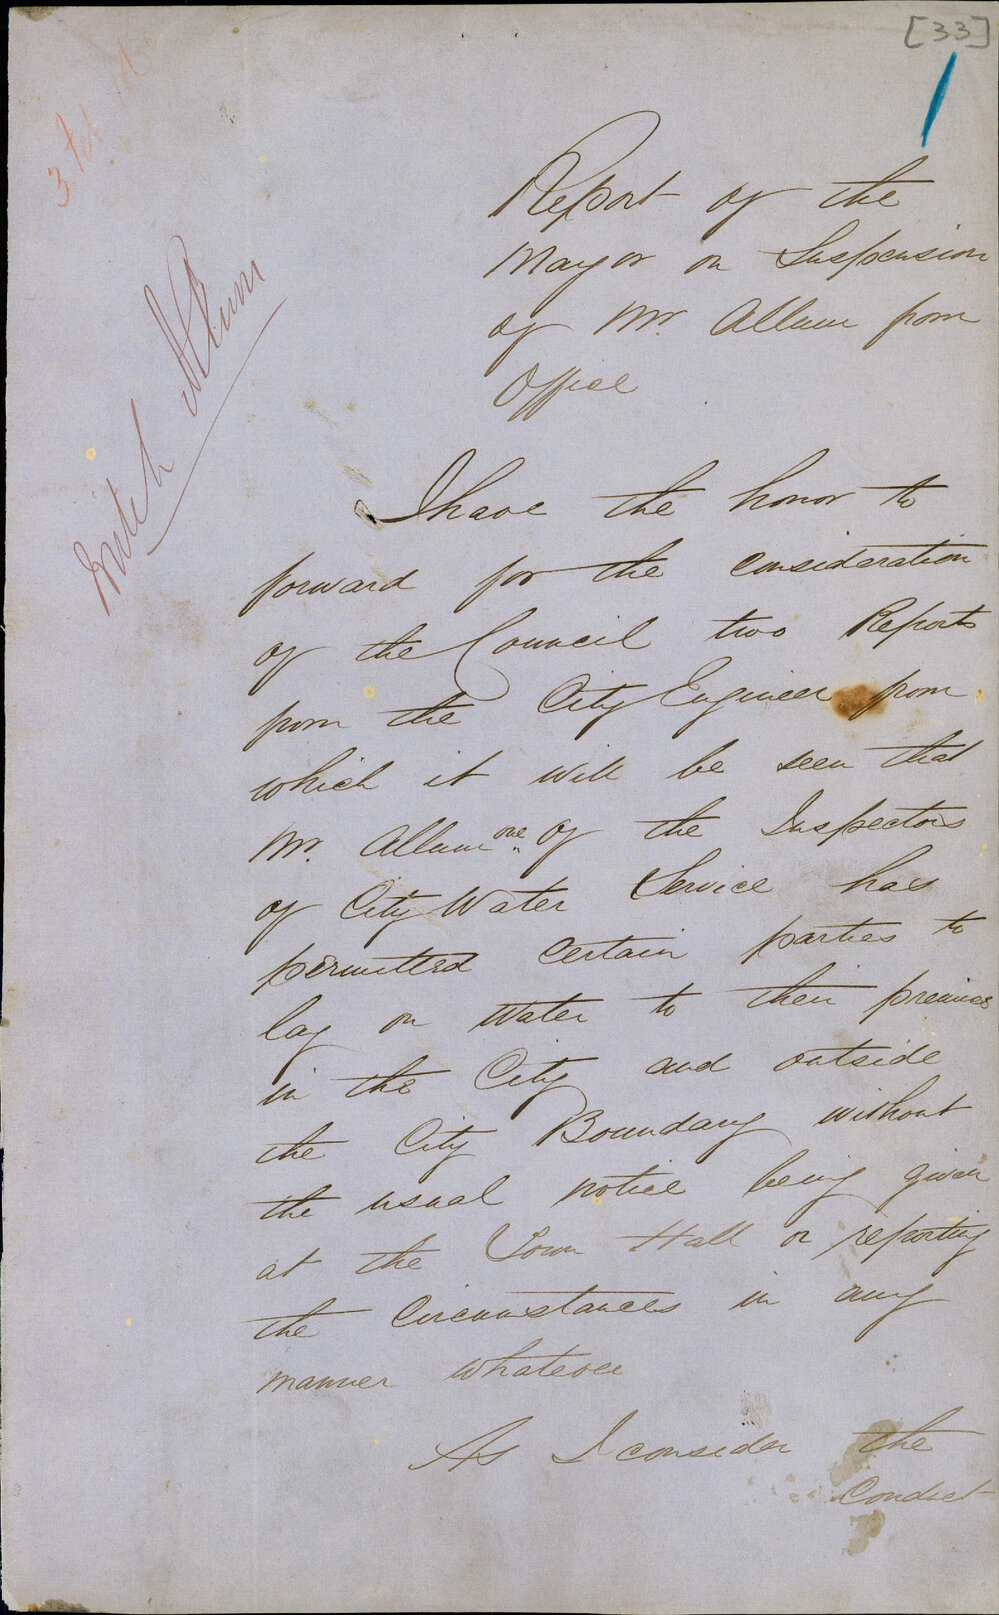 [33]
Report of the
Mayor on Suspension
of Mr. Allum from
Office
I have the honor to
forward for the consideration
of the Council two Reports
from the City Engineer from
which it will be seen that
Mr. Allum one of the Inspectors
of City Water Service has
permitted certain parties to
lay on Water to their premises
in the City and outside
the City Boundary without
the usual notice being given
at the Town Hall or reporting
the Circumstances in any
manner whatever
As I consider the
Conduct
Allum